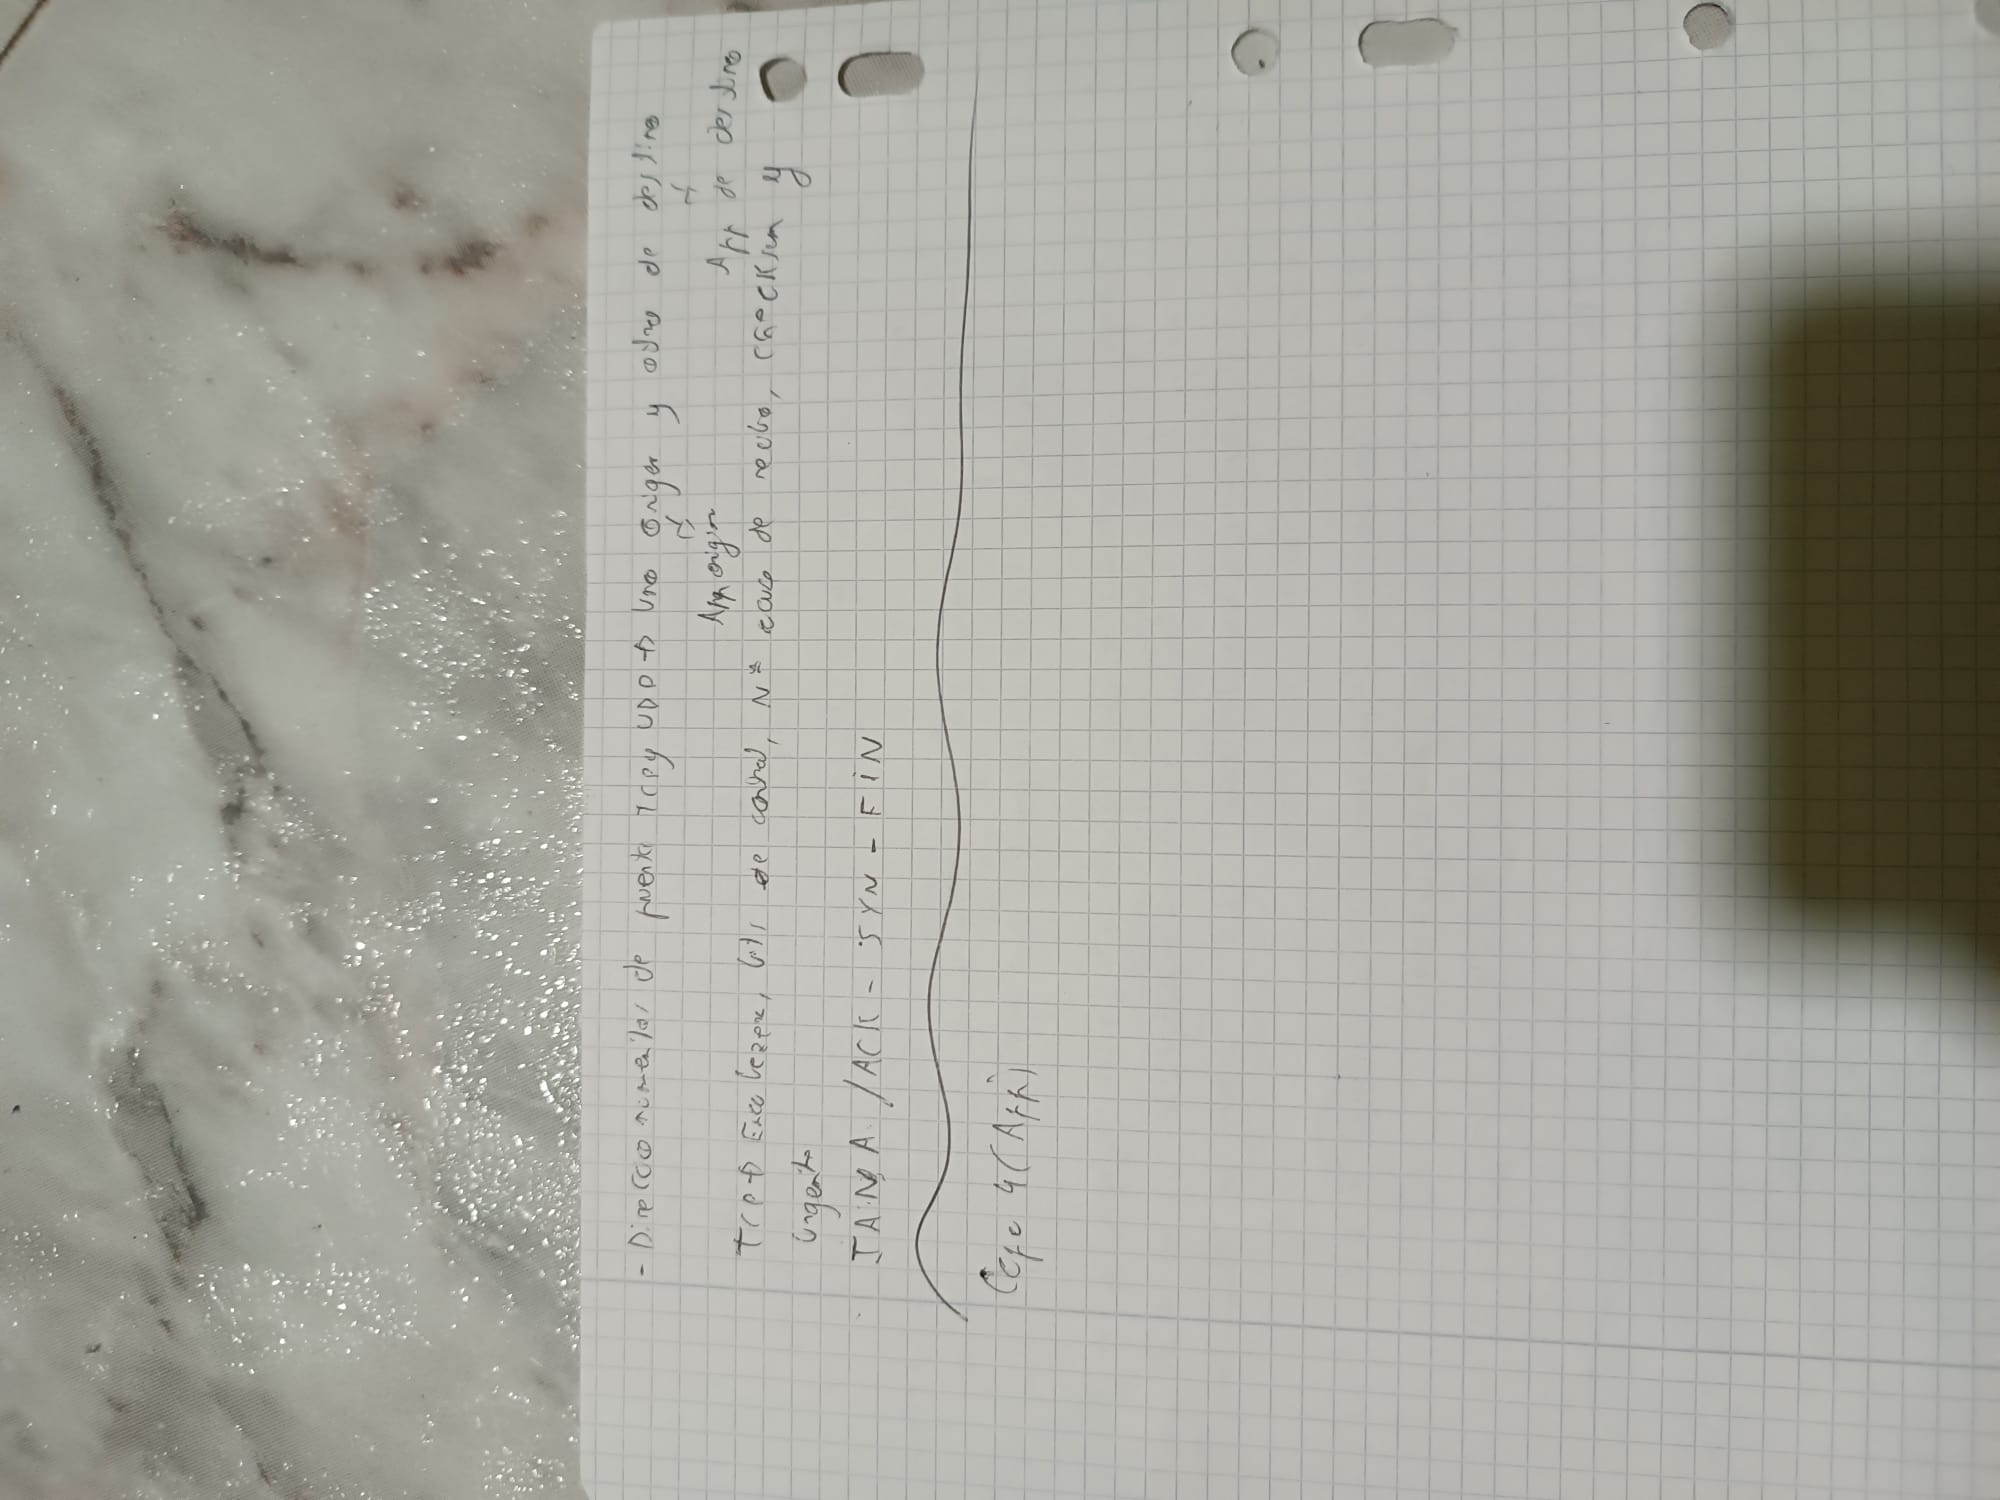 - Direccionamiento de puerto TCP y UDP → Uno origen y otro de destino
App origin App de destino
TCP → Encabezez, bits de control, Nº acuse de recibo, checksum y
urgente
/ ACK - SYN - FIN
Capa 4 (App)